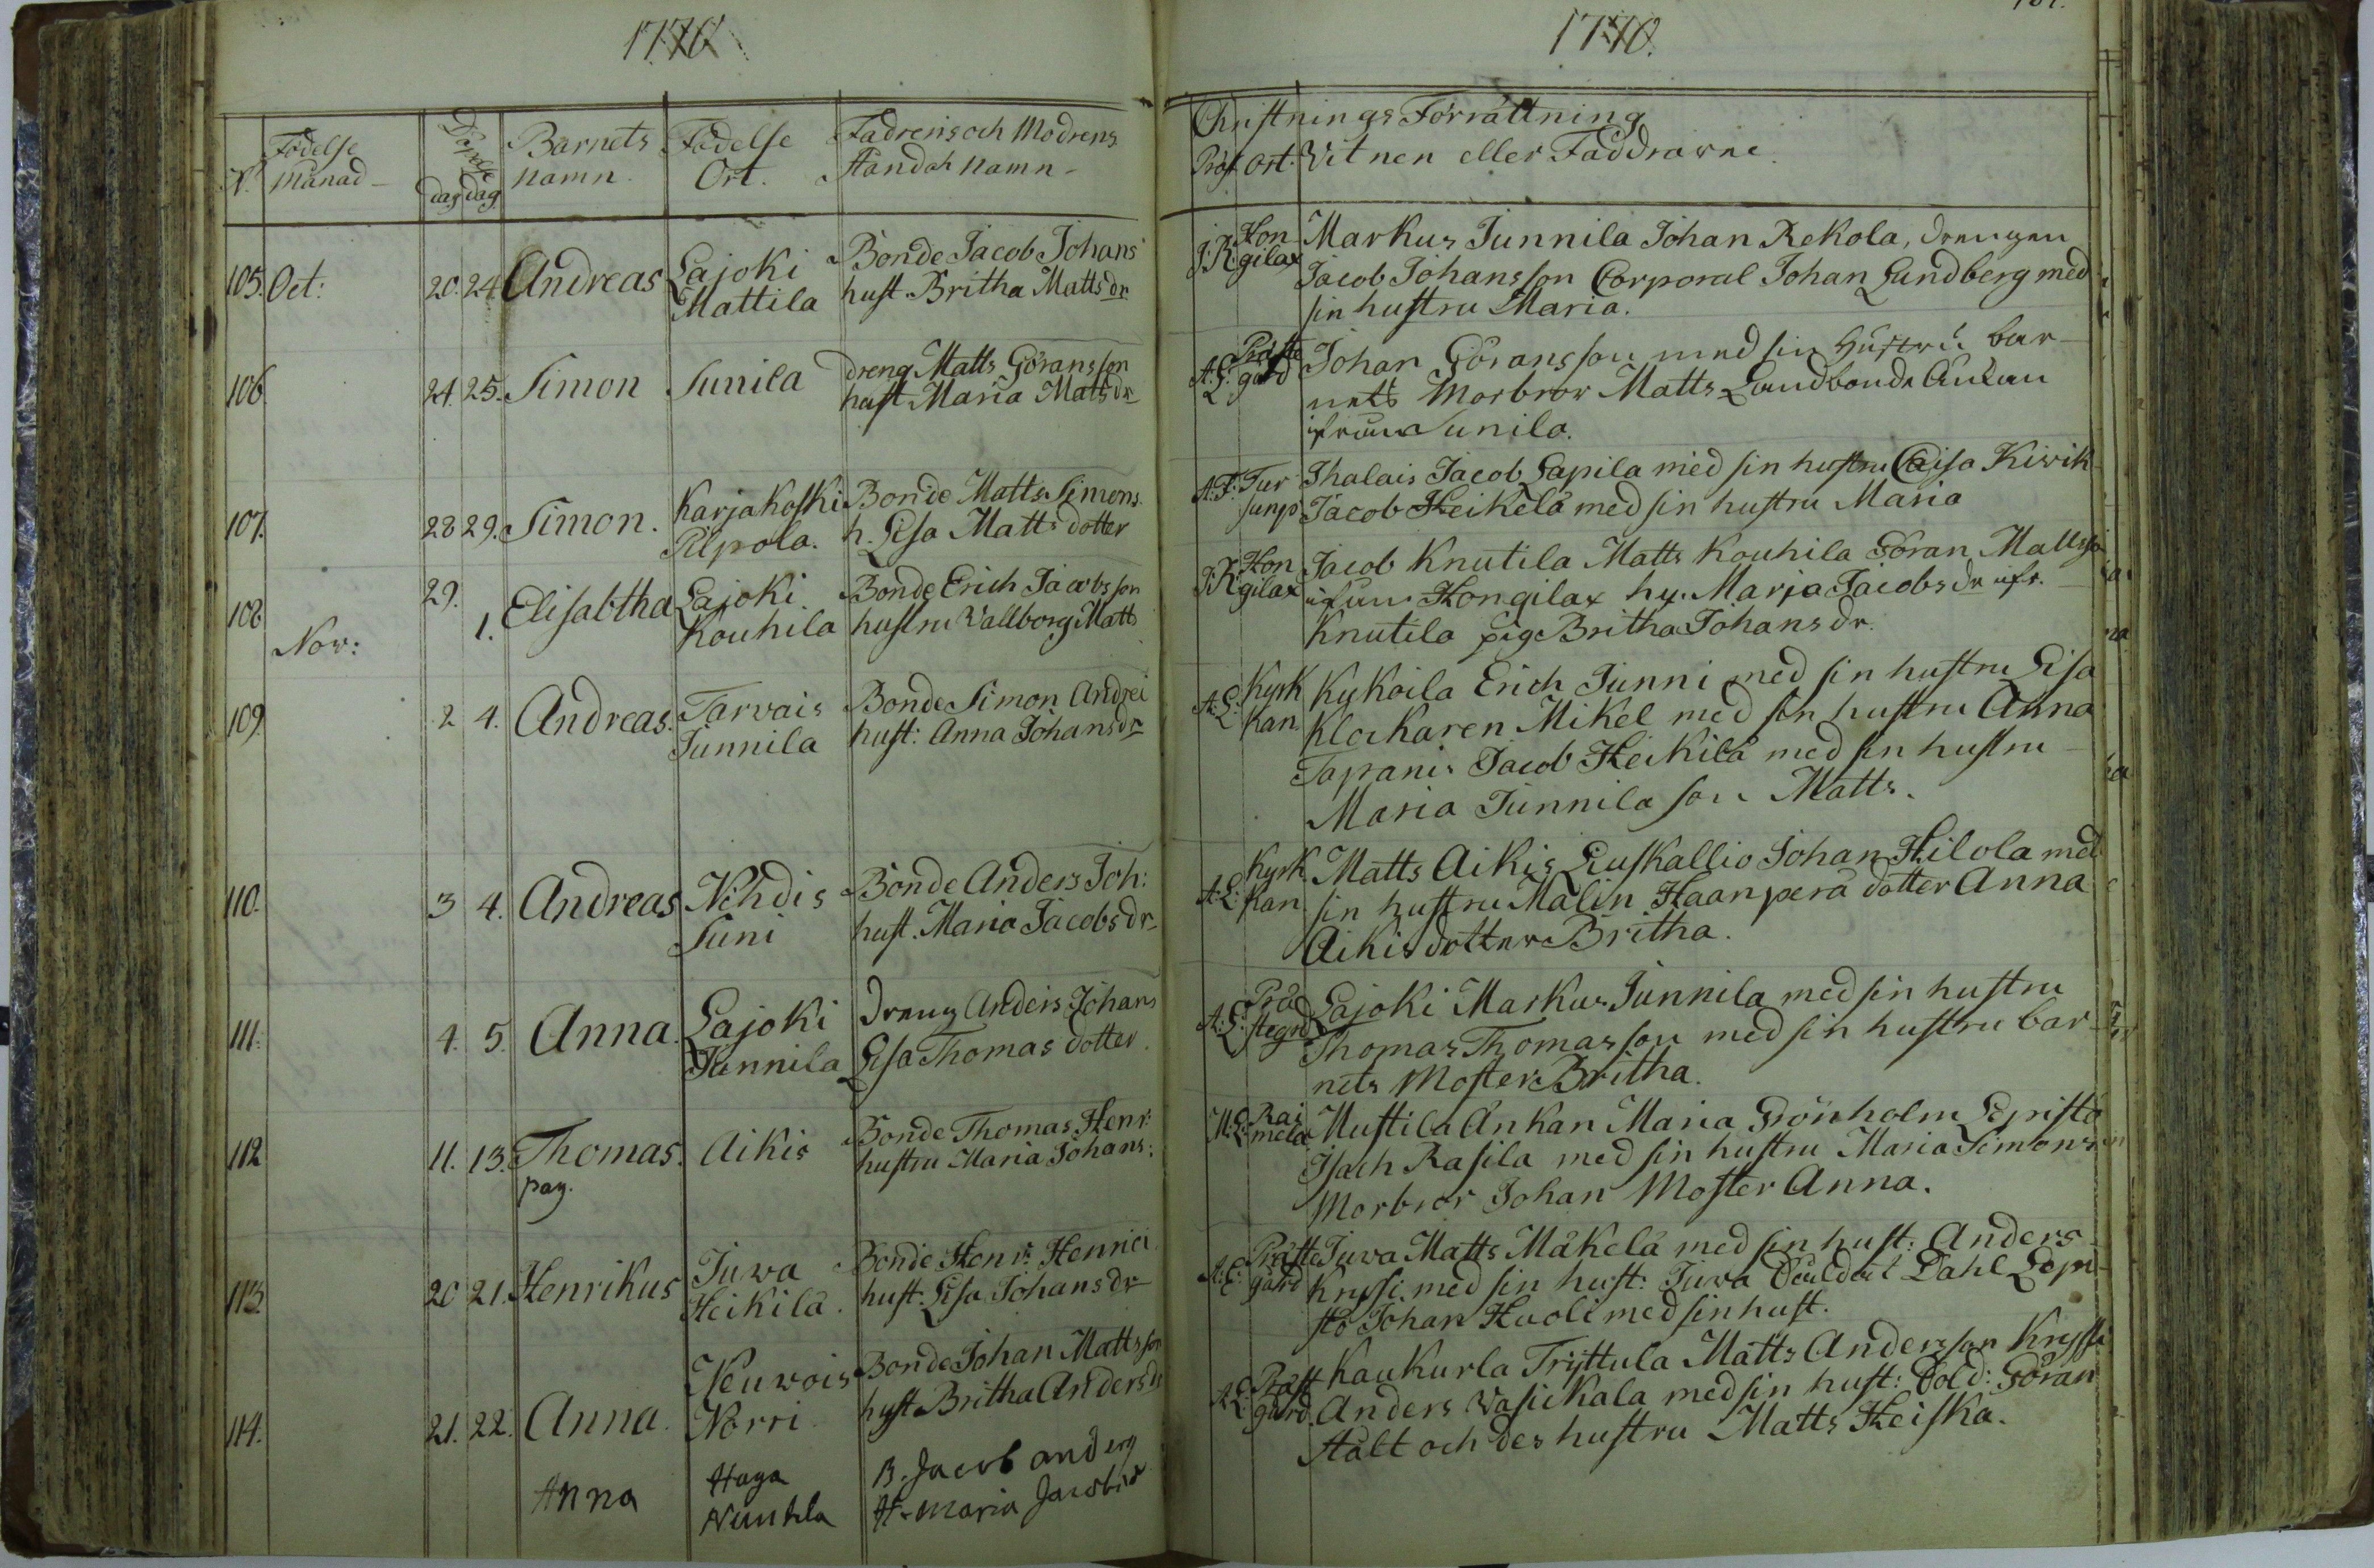 1770
N. Födelse Månad
Döpelse
dag dag
Barnets namn
Födelse Ort.
Fadrens och Modrens
Stånd och Namn
105. Oct: 20. 24. Andreas Lajoki Bonde Jacob Johans
Mattila hust. Britha Matts dr
106. 24. 25. Simon Sunila dreng Matts Göransson
hust Maria Matts dr
107. 28 29. Simon. Karjakoski Bonde Matts Simons
Pilpola. h. Lisa Matts dotter
108 29. Elisabtha Lajoki Bonde Erich Jacobsson
Nov: 1. Kouhila hustru Vallborg Matts
109. 2 4. Andreas. Tarvais Bonde Simon Andrei
Junnila hust: Anna Johans dr
110. 3 4. Andreas Nihdis Bonde Anders Joh:
Suni hust. Maria Jacobs dr
111. 4. 5. Anna. Lajoki Dreng Anders Johans
Junnila Lisa Thomas dotter
112 11. 13. Thomas. Aikis Bonde Thomas Henr:
pag. hustru Maria Johans:
113. 20 21. Henrikus Juwa Bonde Henr: Henrici
Heikilä. hust. Lisa Johans dr
114. 21. 22. Anna. Neuwois Bonde Johan Mattsson
Norri hust Britha Anders dr
Anna Haga B. Jacob
H. Maria
1770.
Christnings Förrättning
Präst ort. Vitnen eller Faddrarne.
J.K. Hon Markus Junnila Johan Rekola, drengen
gilax Jacob Johansson Corporal Johan Lundberg med
sin hustru Maria.
A.L. Präste Johan Göransson med sin Hustru bar-
gård nets Morbror Matts Landbonde
ifrån Sunila.
Tur Thalais Jacob Lapila med sin hustru Caisa Kiwik
sunp Jacob Heikelä med sin hustru Maria
J.K. Hon Jacob Knutila Matts Kouhila Göran Mattsson
gilax ifrån Hongilax hu. Marja Jacobs dr ifr.
Knutila pig Britha Johans dr.
A.L. Kyrk Kykoila Erich Junni med sin hustru Lisa
kan. Klockaren Mikel med sin hustru Anna
Tapanis Jacob Heikilä med sin hustru
Maria Junnila son Matts.
A.L. Kyrk Matts Aikis Liuskallio Johan Hilola med
kan sin hustru Malin Haanperä dotter Anna
Aikis dotter Britha.
A.L. Prä Lajoki Markus Junnila med sin hustru
stegrd Thomas Thomasson med sin hustru bar-
nets Moster Britha.
Rai Mustila Ankan Maria Grönholm Lepistö
mela Isach Rasila med sin hustru Maria Simons
Morbror Johan Moster Anna.
Präste Juwa Matts Mäkelä med sin hust: Anders
gård Kryssi med sin hust: Juwa Dahl Lepi
stö Johan Huoli med sin hust.
Präst Kaukurla Trýttula Matts Andersson
gård. Anders Vasickala med sin hust: Sold: Göran
Stålt och des hustru Matts Heiska.